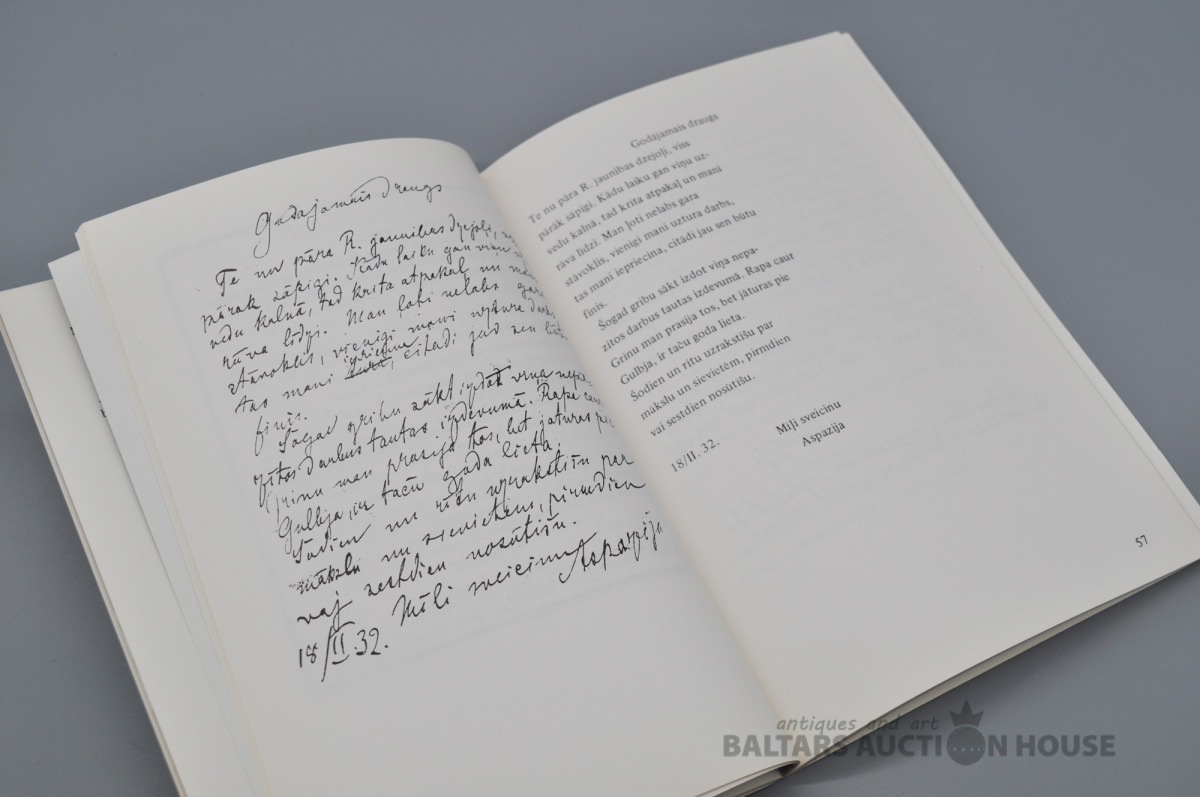 Godājamais draugs
Te nu pāra R. jaunības dzejoļi,
pārāk sāpīgi. Kādu laiku gan viņu
vedu kalnā, tad krita atpakaļ un
rāva līdzi. Man ļoti nelabs gara
stāvoklis, vienīgi mani uztura darbs
tas mani iepriecina, citādi jau sen būtu
finis.
Šogad gribu sākt izdot viņa
zītos darbus tautas izdevumā. Rapa caur
Grinu man prasīja tos, bet jāturas pie
Gulbja, ir taču goda lieta.
Šodien un rītu uzrakstīšu par
mākslu un sievietēm, pirmdien
vaj sestdien nosūtīšu.
Mīļi sveicinu Aspazija
18/II.32.
Godājamais draugs
Te nu pāra R. jaunības dzejoļi, viss
pārāk sāpīgi. Kādu laiku gan viņu uz-
vedu kalnā, tad krita atpakaļ un mani
rāva līdzi. Man ļoti nelabs gara
stāvoklis, vienīgi mani uztura darbs,
tas mani iepriecina, citādi jau sen būtu
finis.
Šogad gribu sākt izdot viņa nepa-
zītos darbus tautas izdevumā. Rapa caur
Grinu man prasīja tos, bet jāturas pie
Gulbja, ir taču goda lieta.
Šodien un rītu uzrakstīšu par
mākslu un sievietēm, pirmdien
vai sestdien nosūtīšu.
Mīļi sveicinu
Aspazija
18/II. 32.
57
antiques and art
BALTARS AUCTION HOUSE